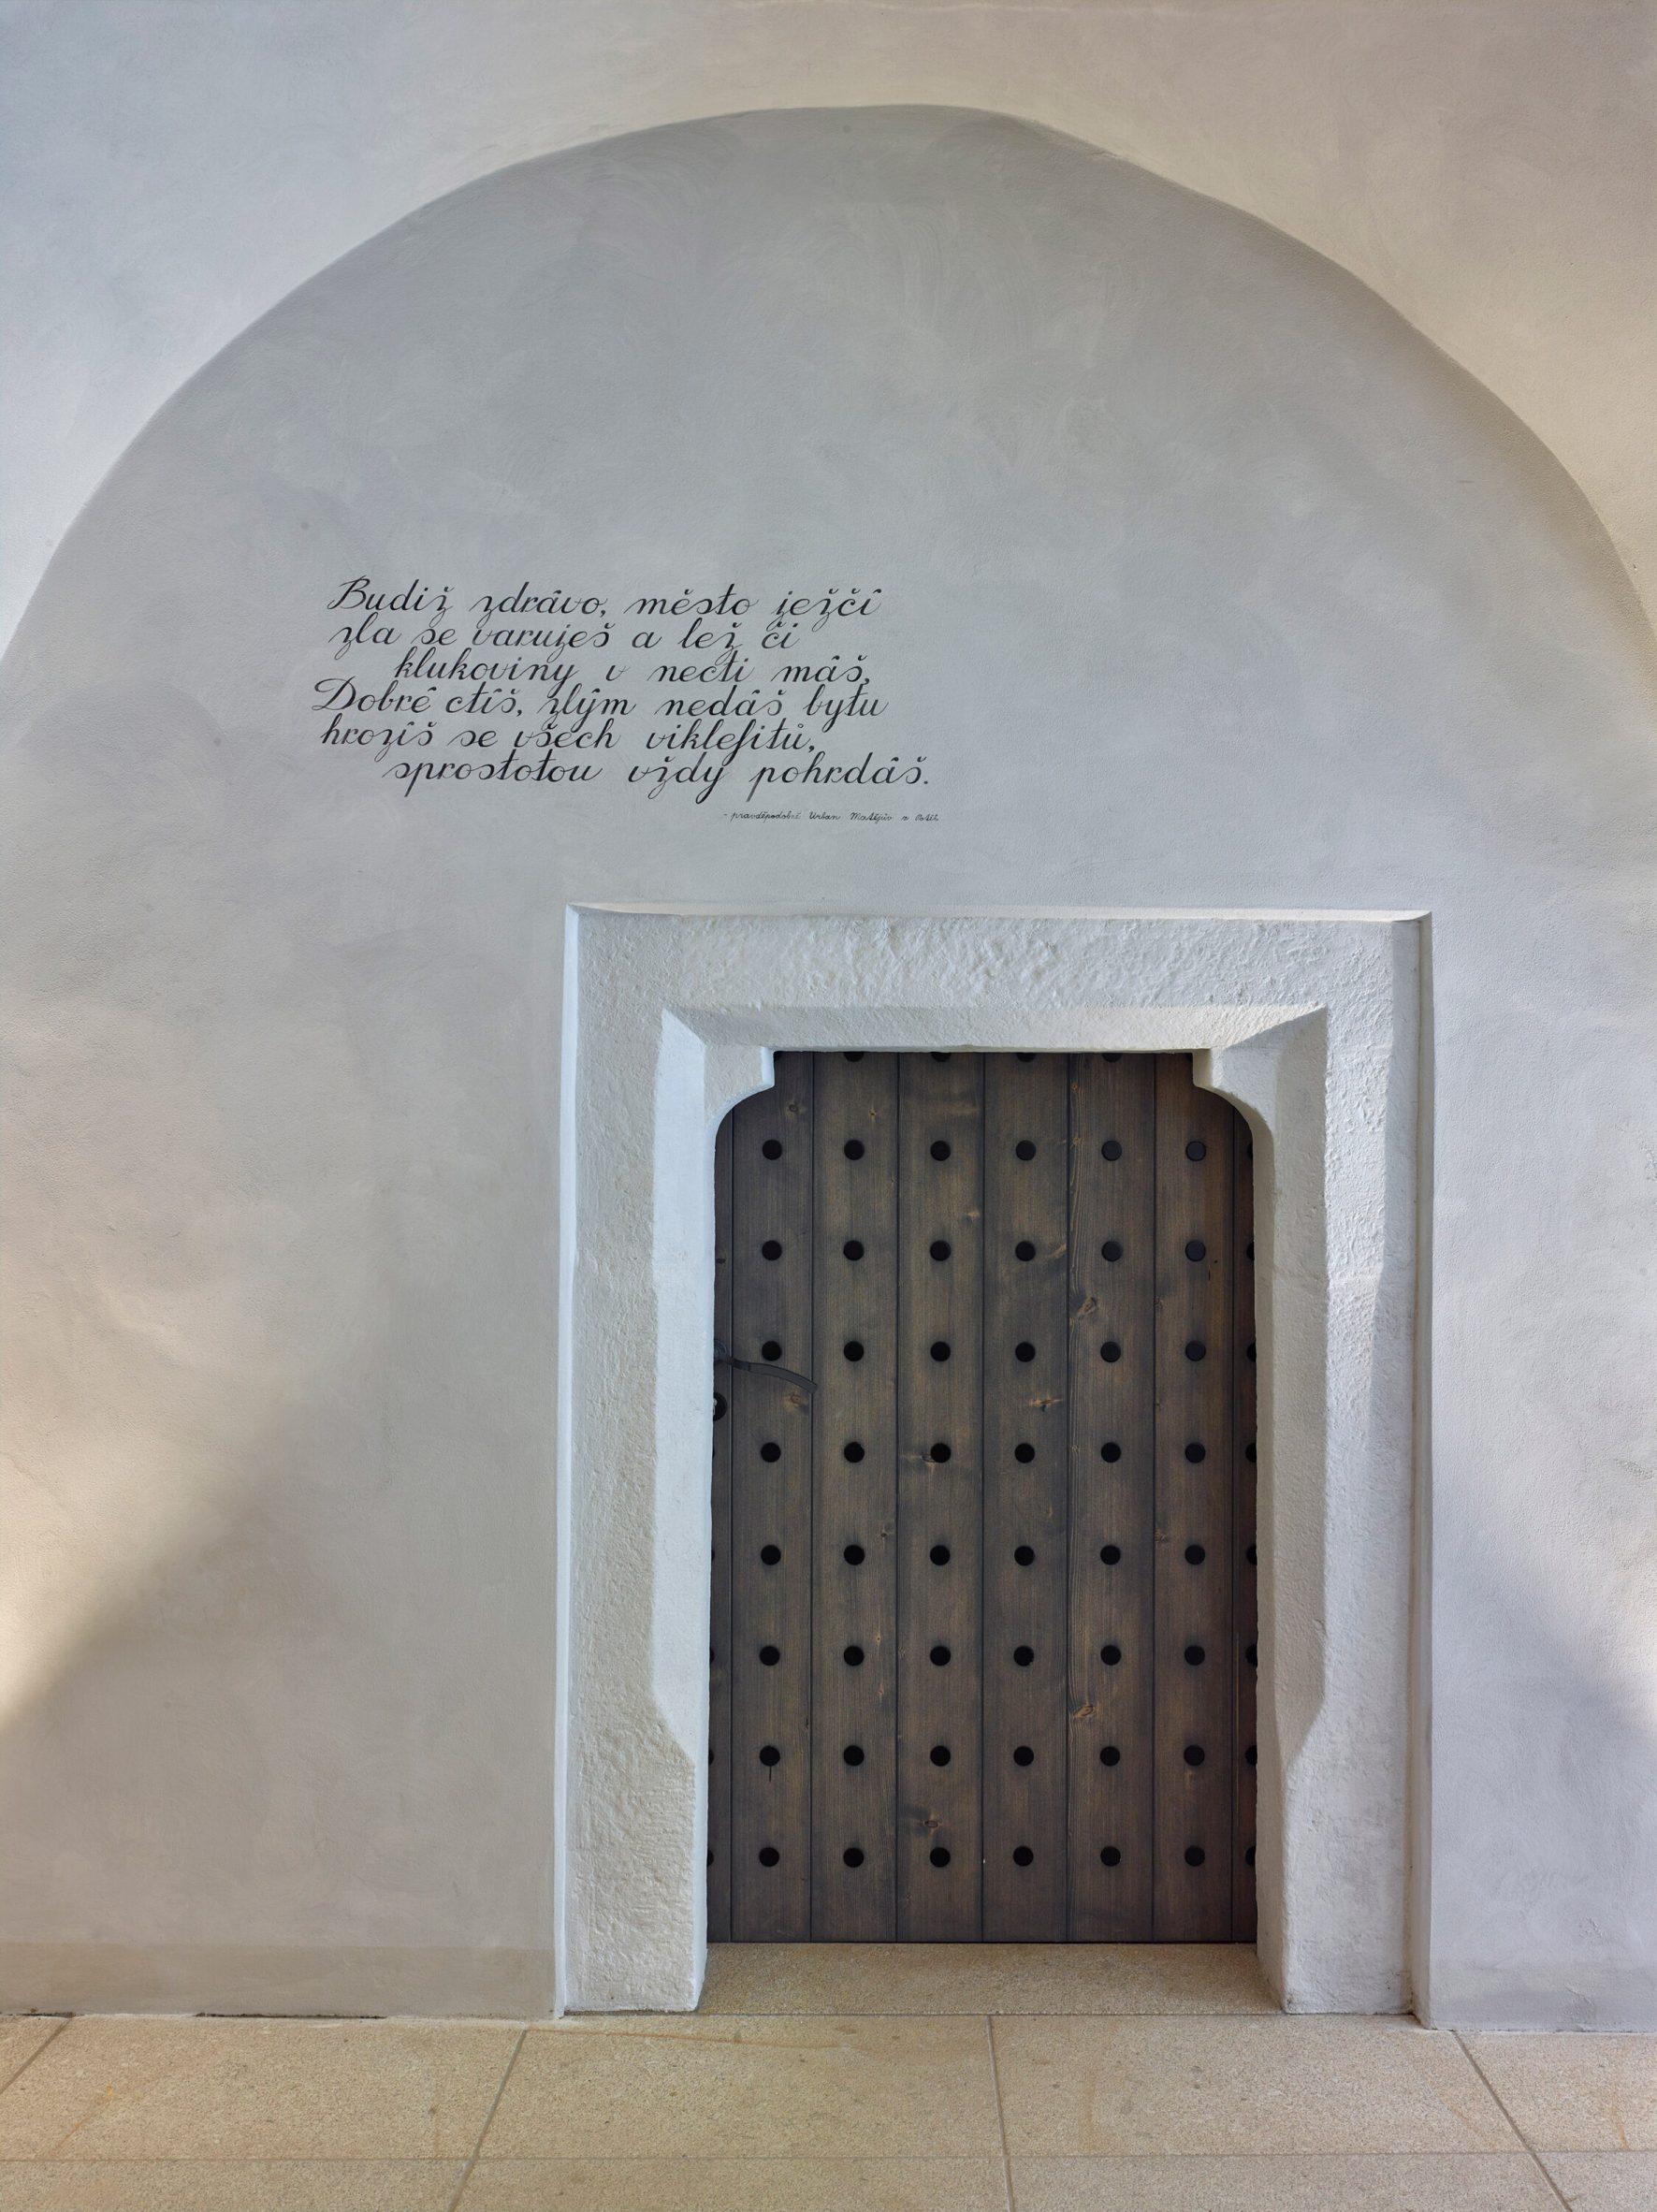 Budiž zdrâvo, město ježčî
zla se varuješ a lež či
klukoviny v necti mâš,
Dobrê ctîš, zlŷm nedâš bytu
hrozîš se všech viklefitů,
sprostotou vždy pohrdâš.
- pravděpodobně Urban Matějův z